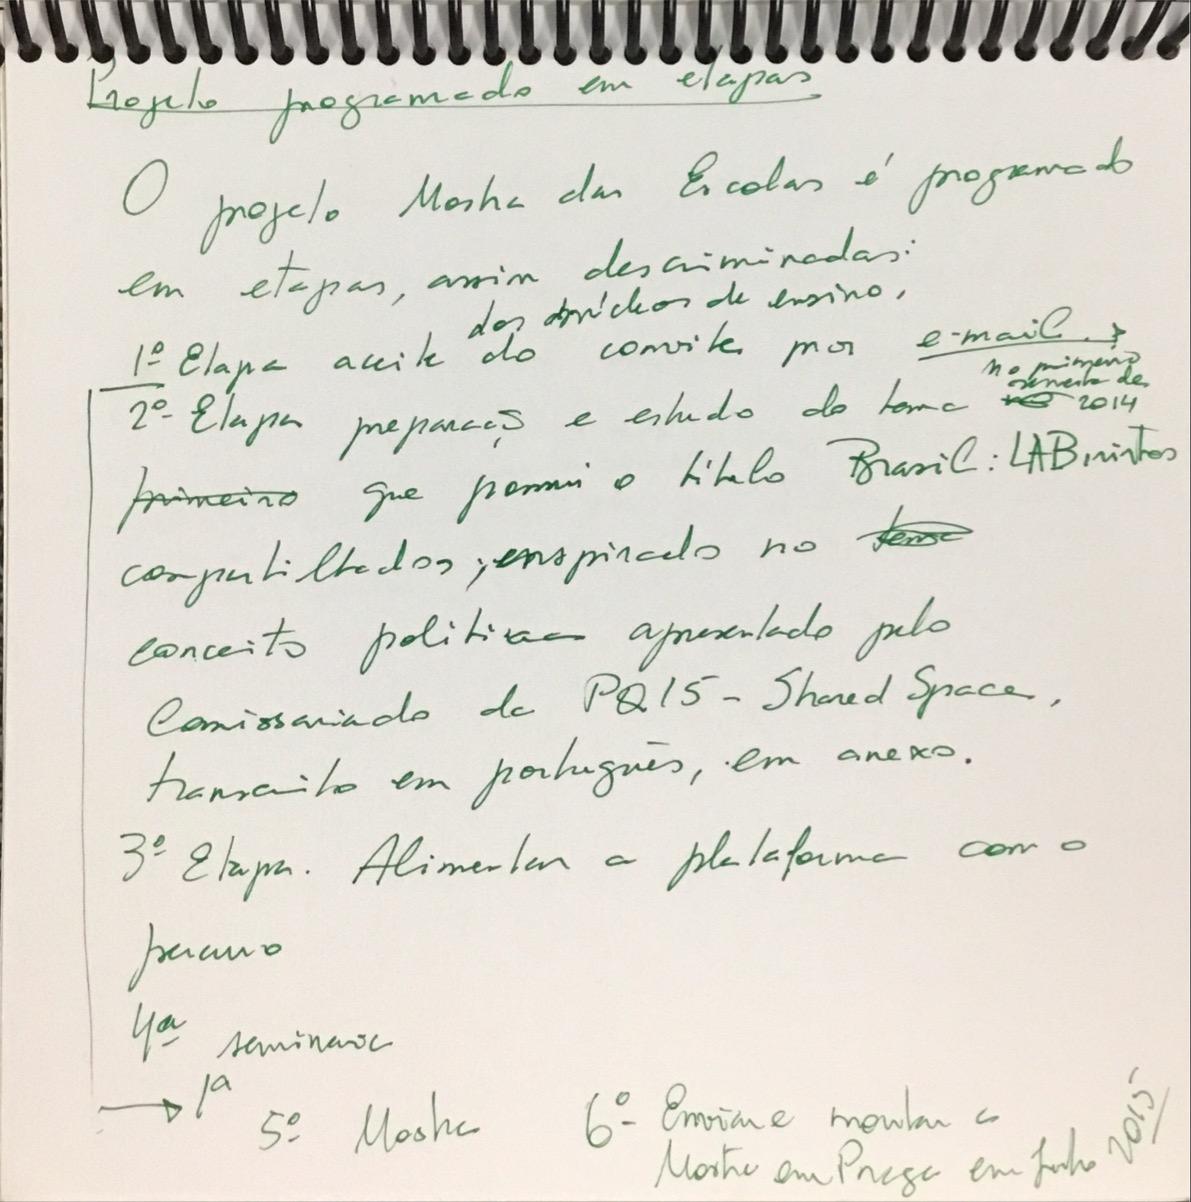 Projeto programado em etapas
O projeto Mostra das Escolas é programado
em etapas, assim descriminadas:
dos de ensino,
1º Etapa aceite do convite por e-mail.
no primeiro
semestre de
2014
2º- Etapa preparação e estudo do tema
primeiro que possui o título Brasil: LABirintos
compartilhados, inspirado no tema
conceito apresentado pelo
Comissariado da PQ15 - Shared Space,
transcrito em português, em anexo.
3º Etapa. Alimentar a plataforma com o
percurso
4ª seminário
1ª
5º Mostra
6º- Enviar e montar a
Mostra em Praga em Junho 2015